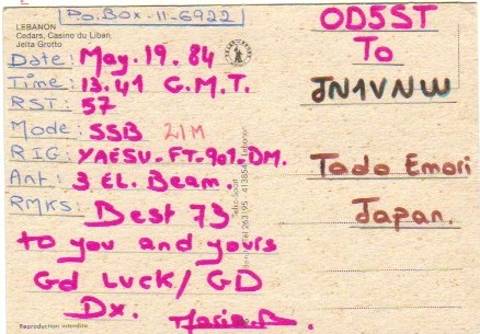 P.O.Box-11-6922
LEBANON
Cedars, Casino du Liban,
Jeita Grotto
OD5ST
To
JN1VNW
Tado Emori
Japan.
Date: May.19.84
Time: 13.41 G.M.T.
RST: 57
Mode: SSB 21M
RIG: YAESU-FT-901-DM.
Ant: 3 EL. Beam.
RMKS: Best 73
to you and yours
Gd Luck/GD
Dx.
Reproduction interdite